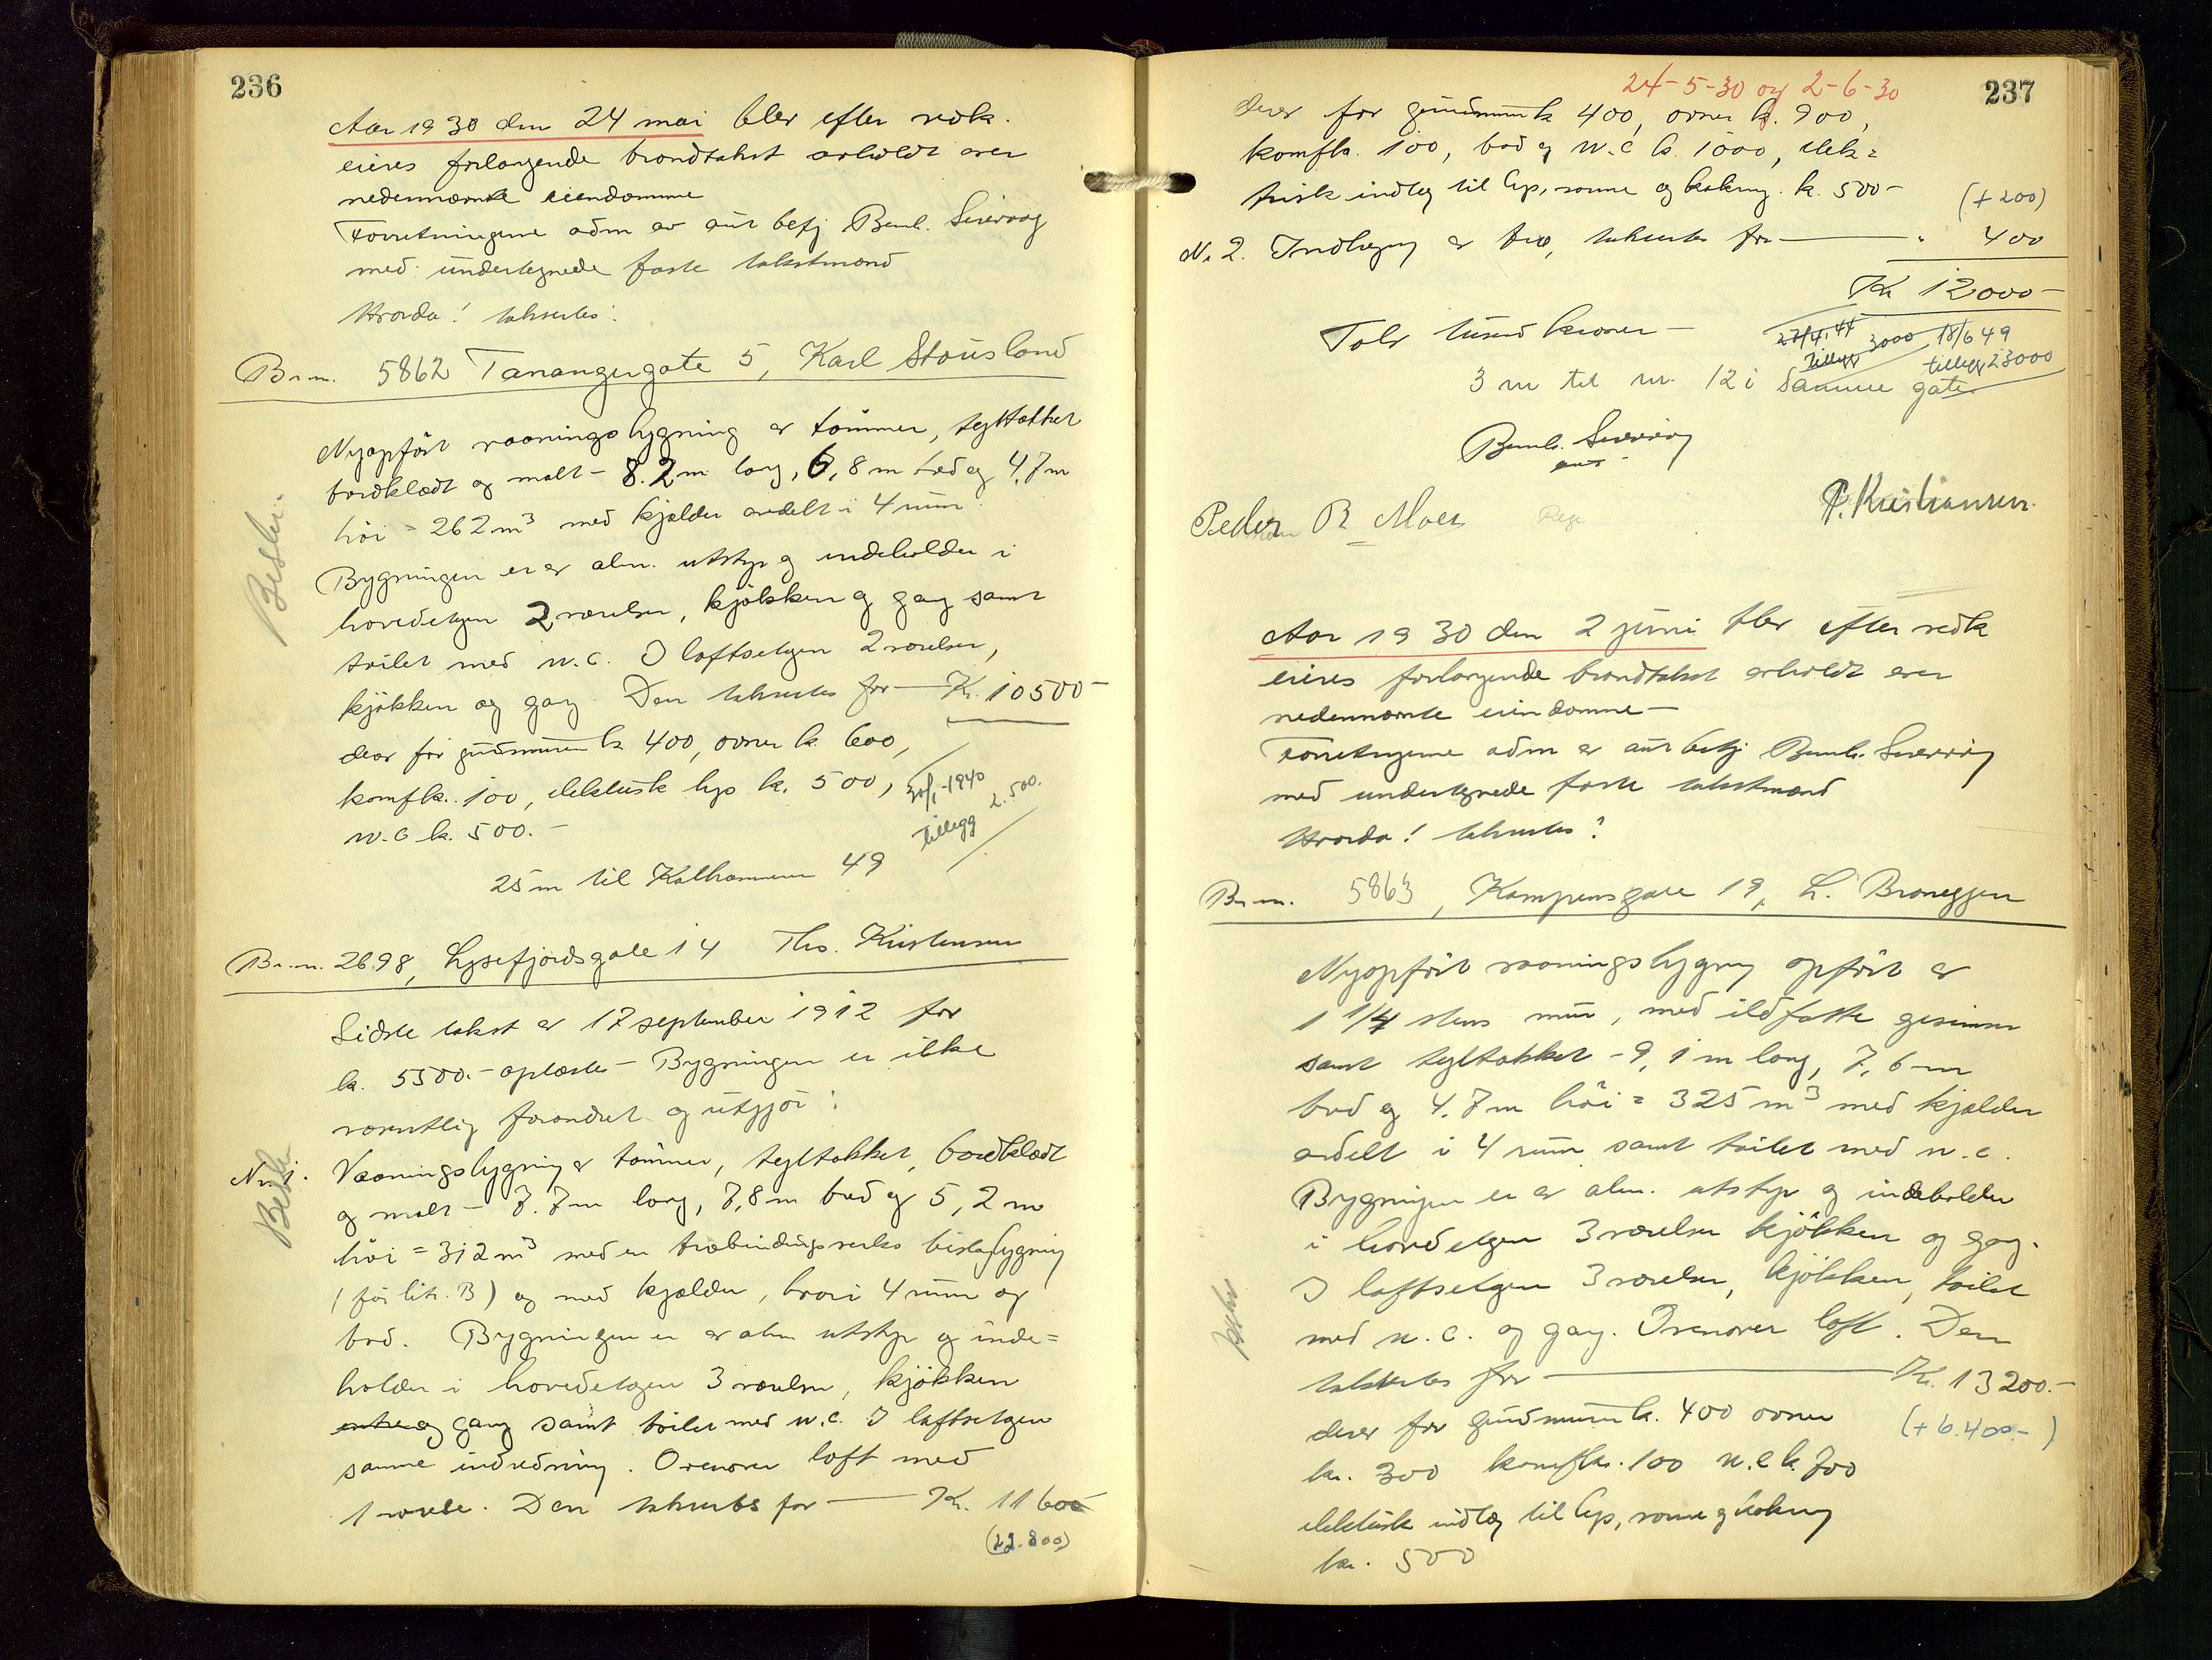 236
Aar 1930 den 24 mai blev efter vedk.
eieres forlangende brandtakst avholdt over
nedennævnte eiendomme
Forretningene adm av aut befj Bernh. Sivertsen
med undertegnede faste takstmænd
Hvorda! takseertes:
Br. nr. 5862 Tanangergate 5, Karl Stousland
Nyopført vaaningsbygning av tømmer, tegltækket
bordklædt og malt – 8.2 m lang, 6,8 m bred og 4,7 m
høi = 262 m³ med kjælder avdelt i 4 rum
Bygningen er av alm. utstyr og indeholder i
hovedetagen 2 værelser, kjøkken og gang samt
toilet med w.c. I loftsetagen 2 værelser,
kjøkken og gang. Den takseres for — Kr. 10500-
derav for grundmuren kr 400, ovner kr. 600,
komfkr. 100, elektrisk lys kr. 500,
w.c kr. 500.-
30/1-1940
tillegg 2.500.
25 m til Kalhammeren 49
Besikt.
Br. nr. 2698, Lysefjordsgate 14 Ths. Kristensen
Sidste takst av 17 september 1912 for
kr. 5500.- oplæstes – Bygningen er ikke
væsentlig forandret og utgjør:
Nr. 1. Vaaningsbygning av tømmer, tegltækket, bordklædt
og malt – 7.7 m lang, 7,8 m bred og 5,2 m
høi = 312 m³ med en træbindingsverks bislagbygning
(før litr. B) og med kjælder, hvori 4 rum og
bod. Bygningen er av alm utstyr og inde=
holder i hovedetagen 3 værelser, kjøkken
entre og gang samt toilet med w.c. I loftsetagen
samme indredning. Ovenover loft med
1 værelse. Den takseres for — Kr. 11600
(22.800)
24-5-30 og 2-6-30
237
derav for grundmur kr 400, ovner kr. 900,
komfkr. 100, bad og w.c kr. 1000, elek=
trisk indlæg til lys, varme og kokning. kr. 500-
(+200)
Nr 2. Indhegning av træ, takseres for — " 400
Kr 12000-
Tolv tusind kroner —
27/4.44 tillegg 3000
18/6 49 tillegg 23000
3 m til nr. 12 i samme gate
Bernh. Sivertsen
aut.
Peder B Moen
P. Kristiansen.
Aar 1930 den 2 juni blev efter vedk
eieres forlangende brandtakst avholdt over
nedennævnte eiendomme —
Forretningene adm av aut befj. Bernh. Sivertsen
med undertegnede faste takstmænd
Hvorda! takseertes:
Br. nr. 5863, Kampensgate 19, L. Broneggen
Nyopført vaaningsbygning opført av
1 1/4 stens mur, med ildfaste gesimser
samt tegltækket – 9,1 m lang, 7,6 m
bred og 4,7 m høi = 325 m³ med kjælder
avdelt i 4 rum samt toilet med w.c.
Bygningen er av alm. utstyr og indeholder
i hovedetagen 3 værelser kjøkken og gang.
I loftsetagen 3 værelser, kjøkken, toilet
med w.c. og gang. Ovenover loft. Den
takseres for — Kr. 13200.-
derav for grundmuren kr. 400 ovner
(+ 6.400.-)
kr. 300 komfkr. 100 w.c kr. 700
elektrisk indlæg til lys, varme og kokning
kr. 500